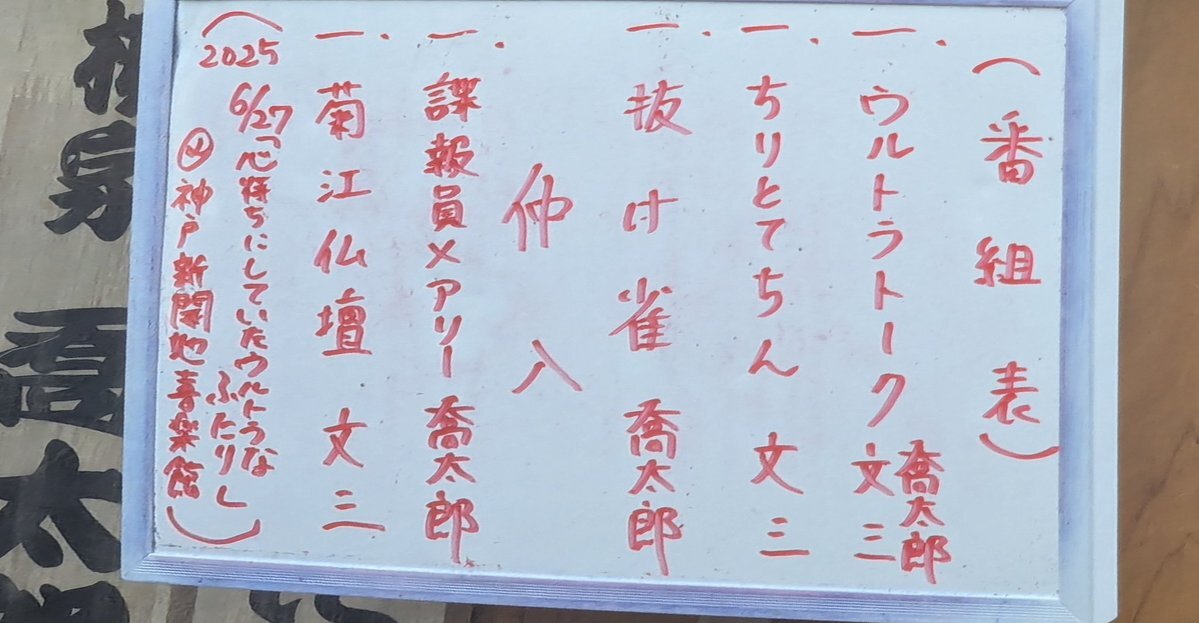 （番組表）
一、ウルトラトーク 喬太郎 文三
一、ちりとてちん 文三
一、抜け雀 喬太郎
仲入
一、諜報員メアリー 喬太郎
一、菊江仏壇 文三
（2025 6/27「心待ちにしていたウルトラな
ふたり」
㋱神戸新開地喜楽館）
喬太郎